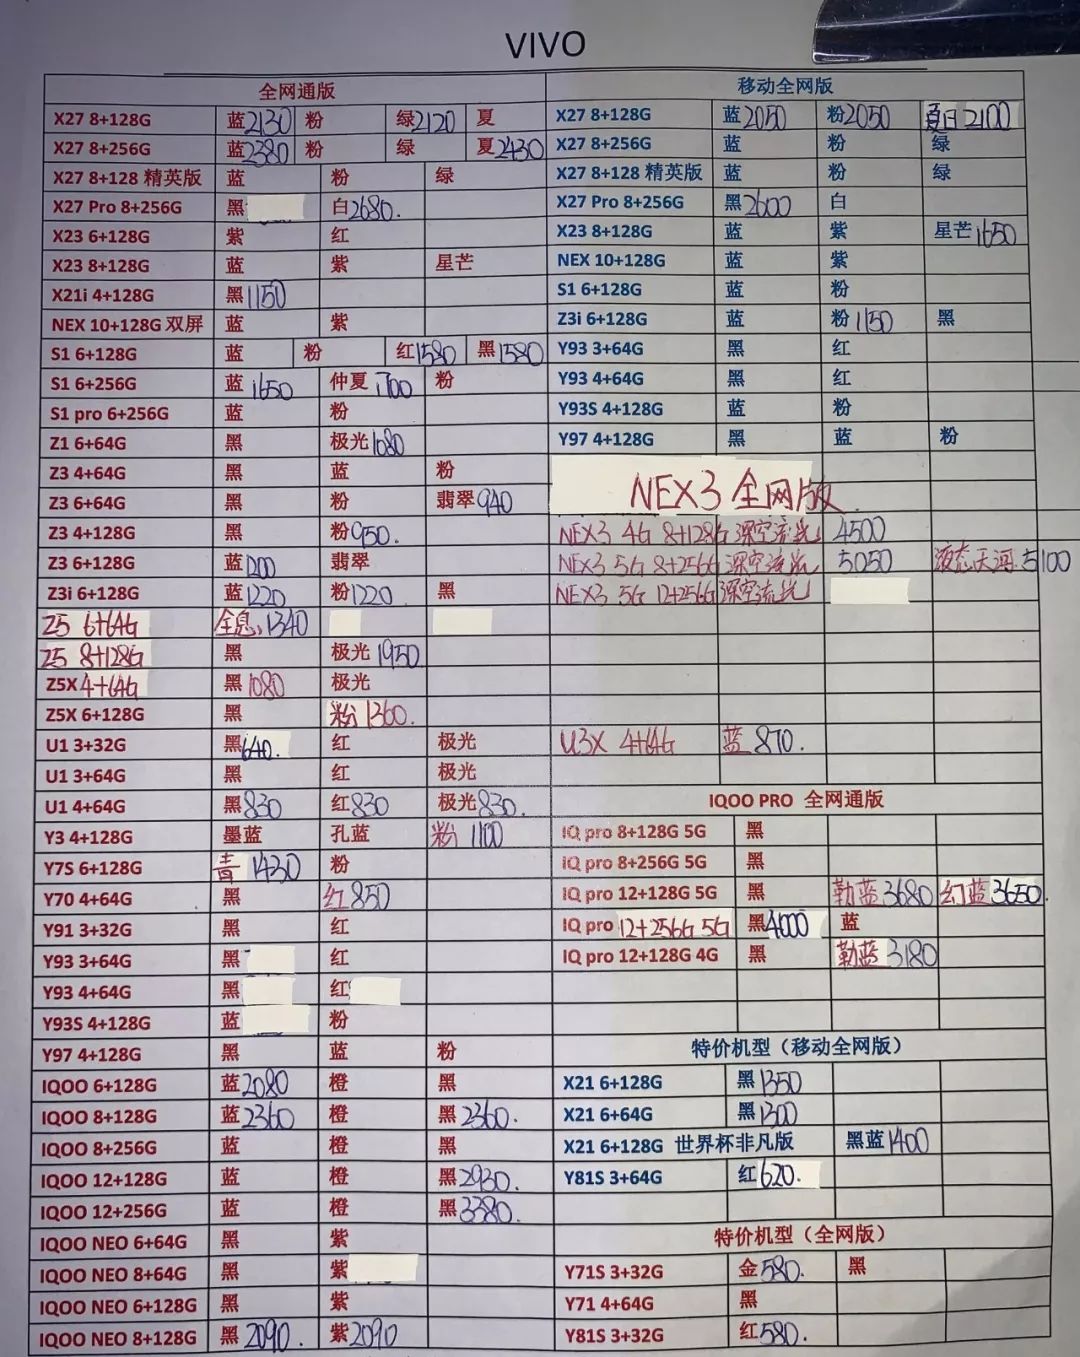 VIVO
全网通版
X27 8+128G 蓝2130 粉 绿2120 夏
X27 8+256G 蓝2380 粉 绿 夏2430
X27 8+128 精英版 蓝 粉 绿
X27 Pro 8+256G 黑 白2680.
X23 6+128G 紫 红
X23 8+128G 蓝 紫 星芒
X21i 4+128G 黑1150
NEX 10+128G 双屏 蓝 紫
S1 6+128G 蓝 粉 红1580 黑1580
S1 6+256G 蓝1650 仲夏1700 粉
S1 pro 6+256G 蓝 粉
Z1 6+64G 黑 极光1080
Z3 4+64G 黑 蓝 粉
Z3 6+64G 黑 粉 翡翠940
Z3 4+128G 黑 粉950.
Z3 6+128G 蓝1200 翡翠
Z3i 6+128G 蓝1220 粉1220 黑
Z5 6+64G 全息,1340
Z5 8+128G 黑 极光1950
Z5X 4+64G 黑1080 极光
Z5X 6+128G 黑 粉1360.
U1 3+32G 黑640. 红 极光
U1 3+64G 黑 红 极光
U1 4+64G 黑830 红830 极光830.
Y3 4+128G 墨蓝 孔蓝 粉1100
Y7S 6+128G 青1430 粉
Y70 4+64G 黑 红850
Y91 3+32G 黑 红
Y93 3+64G 黑 红
Y93 4+64G 黑 红
Y93S 4+128G 蓝 粉
Y97 4+128G 黑 蓝 粉
IQOO 6+128G 蓝2080 橙 黑
IQOO 8+128G 蓝2360 橙 黑2360.
IQOO 8+256G 蓝 橙 黑
IQOO 12+128G 蓝 橙 黑2930.
IQOO 12+256G 蓝 橙 黑3380.
IQOO NEO 6+64G 黑 紫
IQOO NEO 8+64G 黑 紫
IQOO NEO 6+128G 黑 紫
IQOO NEO 8+128G 黑2090. 紫2090
移动全网版
X27 8+128G 蓝2050 粉2050 夏日2100
X27 8+256G 蓝 粉 绿
X27 8+128 精英版 蓝 粉 绿
X27 Pro 8+256G 黑2600 白
X23 8+128G 蓝 紫 星芒1650
NEX 10+128G 蓝 紫
S1 6+128G 蓝 粉
Z3i 6+128G 蓝 粉1150 黑
Y93 3+64G 黑 红
Y93 4+64G 黑 红
Y93S 4+128G 蓝 粉
Y97 4+128G 黑 蓝 粉
NEX3 全网版.
NEX3 4G 8+128G 深空流光 4500
NEX3 5G 8+256G 深空流光 5050 液态天河.5100
NEX3 5G 12+256G 深空流光
U3X 4+64G 蓝870.
IQOO PRO 全网通版
IQ pro 8+128G 5G 黑
IQ pro 8+256G 5G 黑
IQ pro 12+128G 5G 黑 勒蓝3680 幻蓝3650.
IQ pro 12+256G 5G 黑4000 蓝
IQ pro 12+128G 4G 黑 勒蓝3180
特价机型（移动全网版）
X21 6+128G 黑1350
X21 6+64G 黑1300
X21 6+128G 世界杯非凡版 黑蓝1400
Y81S 3+64G 红620.
特价机型（全网版）
Y71S 3+32G 金580. 黑
Y71 4+64G 黑
Y81S 3+32G 红580.